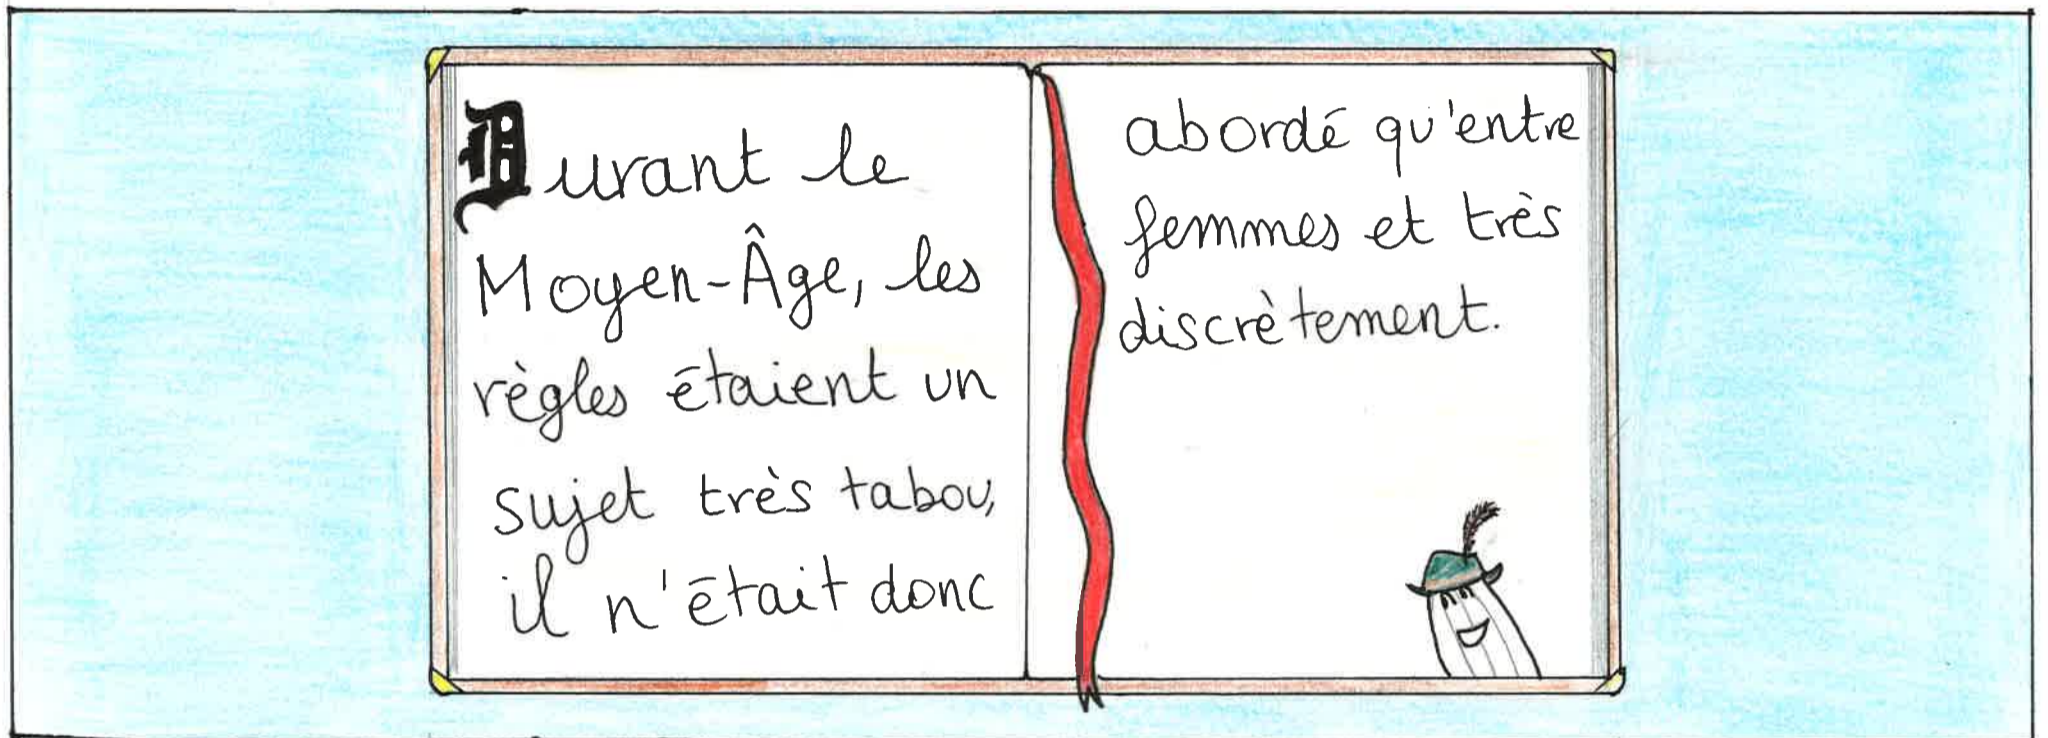 Durant le
Moyen-Âge, les
règles étaient un
sujet très tabou,
il n'était donc
abordé qu'entre
femmes et très
discrètement.